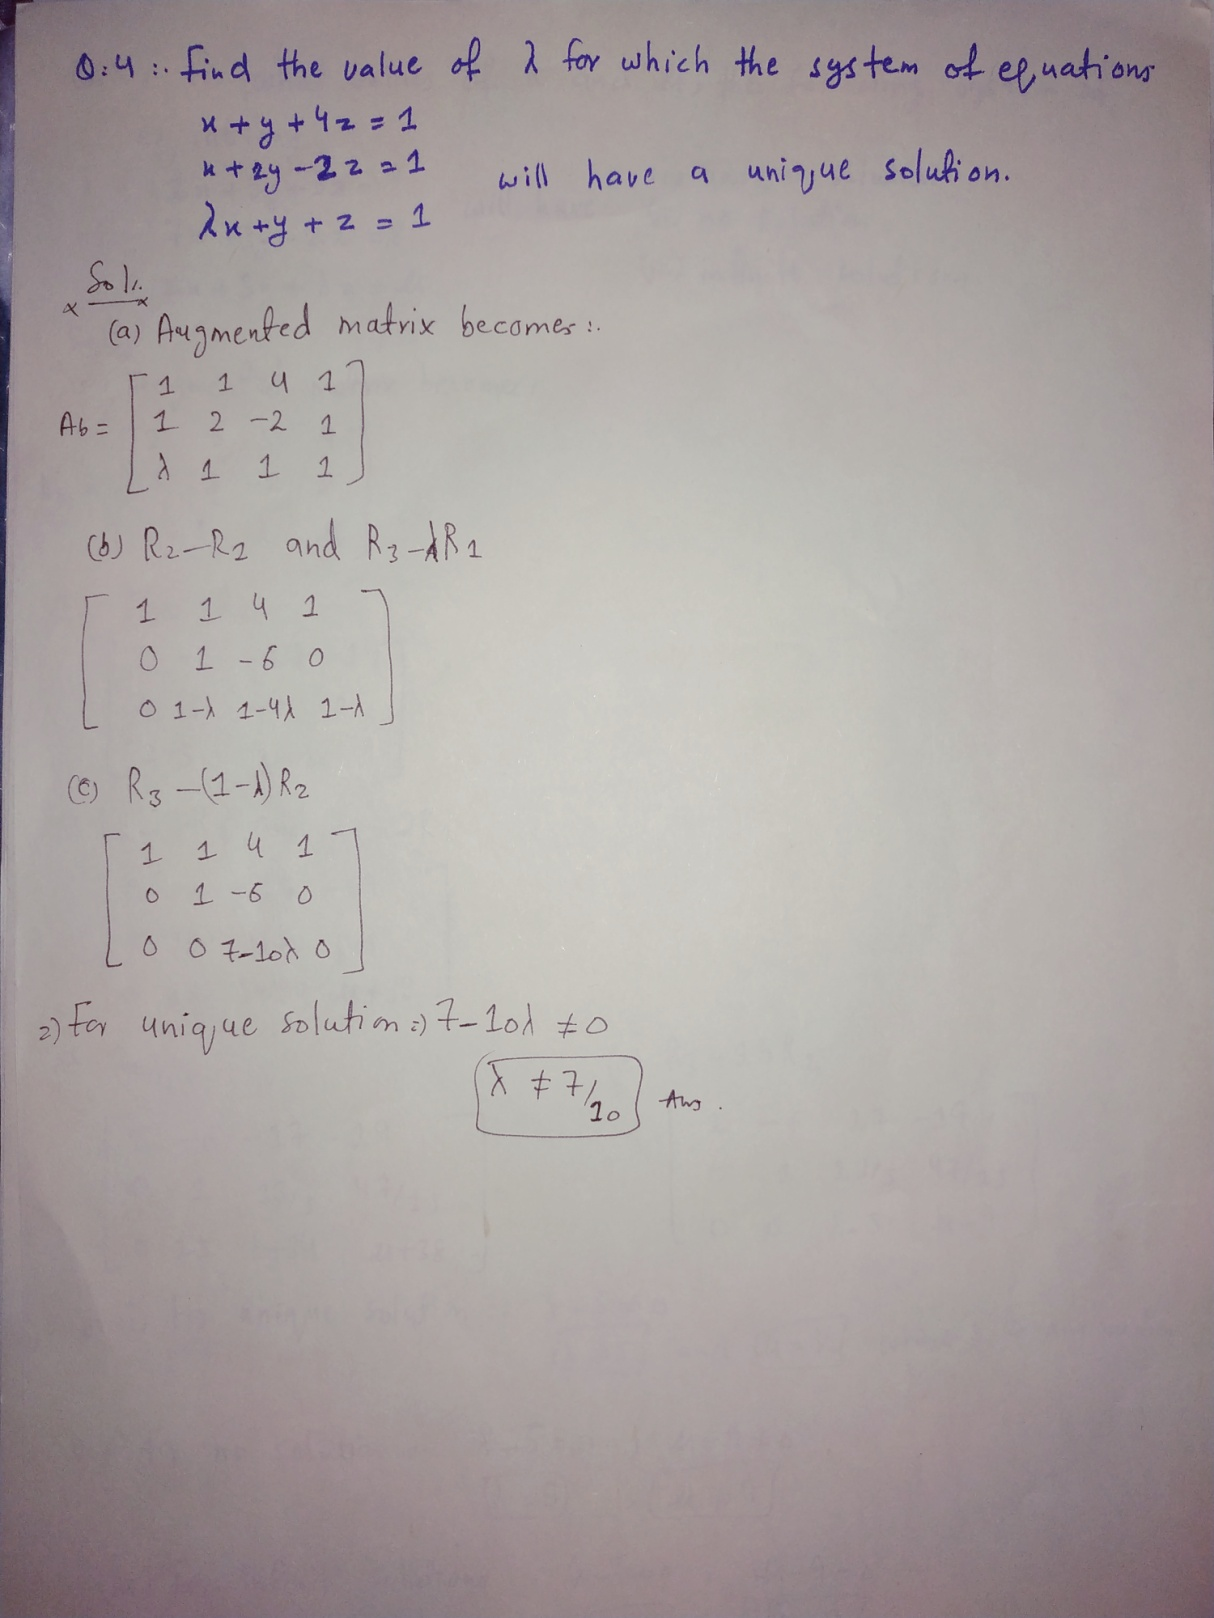 Q:4 :. find the value of λ for which the system of equations
x + y + 4z = 1
x + 2y - 2z = 1 will have a unique solution.
λx + y + z = 1
Sol:.
(a) Augmented matrix becomes :.
1 1 4 1
Ab = 1 2 -2 1
λ 1 1 1
(b) R2-R1 and R3-λR1
1 1 4 1
0 1 -6 0
0 1-λ 1-4λ 1-λ
(c) R3 -(1-λ) R2
1 1 4 1
0 1 -6 0
0 0 7-10λ 0
2) For unique solution =) 7-10λ ≠ 0
λ ≠ 7/10 Ans.